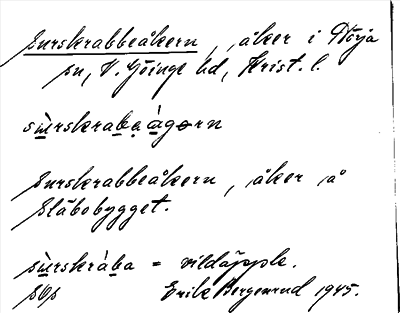 Surskrabbeåkern, åker i Nörja
sn, V. Göinge hd, Krist. l.
sùrskrabaàgɵrn
Surskrabbeåkern, åker å
Slåbobygget.
sùrskràba = vildäpple.
Erik Bergenrud 1945.